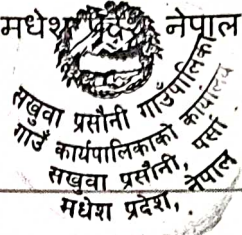 मधेश प्रदेश, नेपाल
सखुवा प्रसौनी गाउँपालिका
गाउँ कार्यपालिकाको कार्यालय
सखुवा प्रसौनी, पर्सा
मधेश प्रदेश, नेपाल